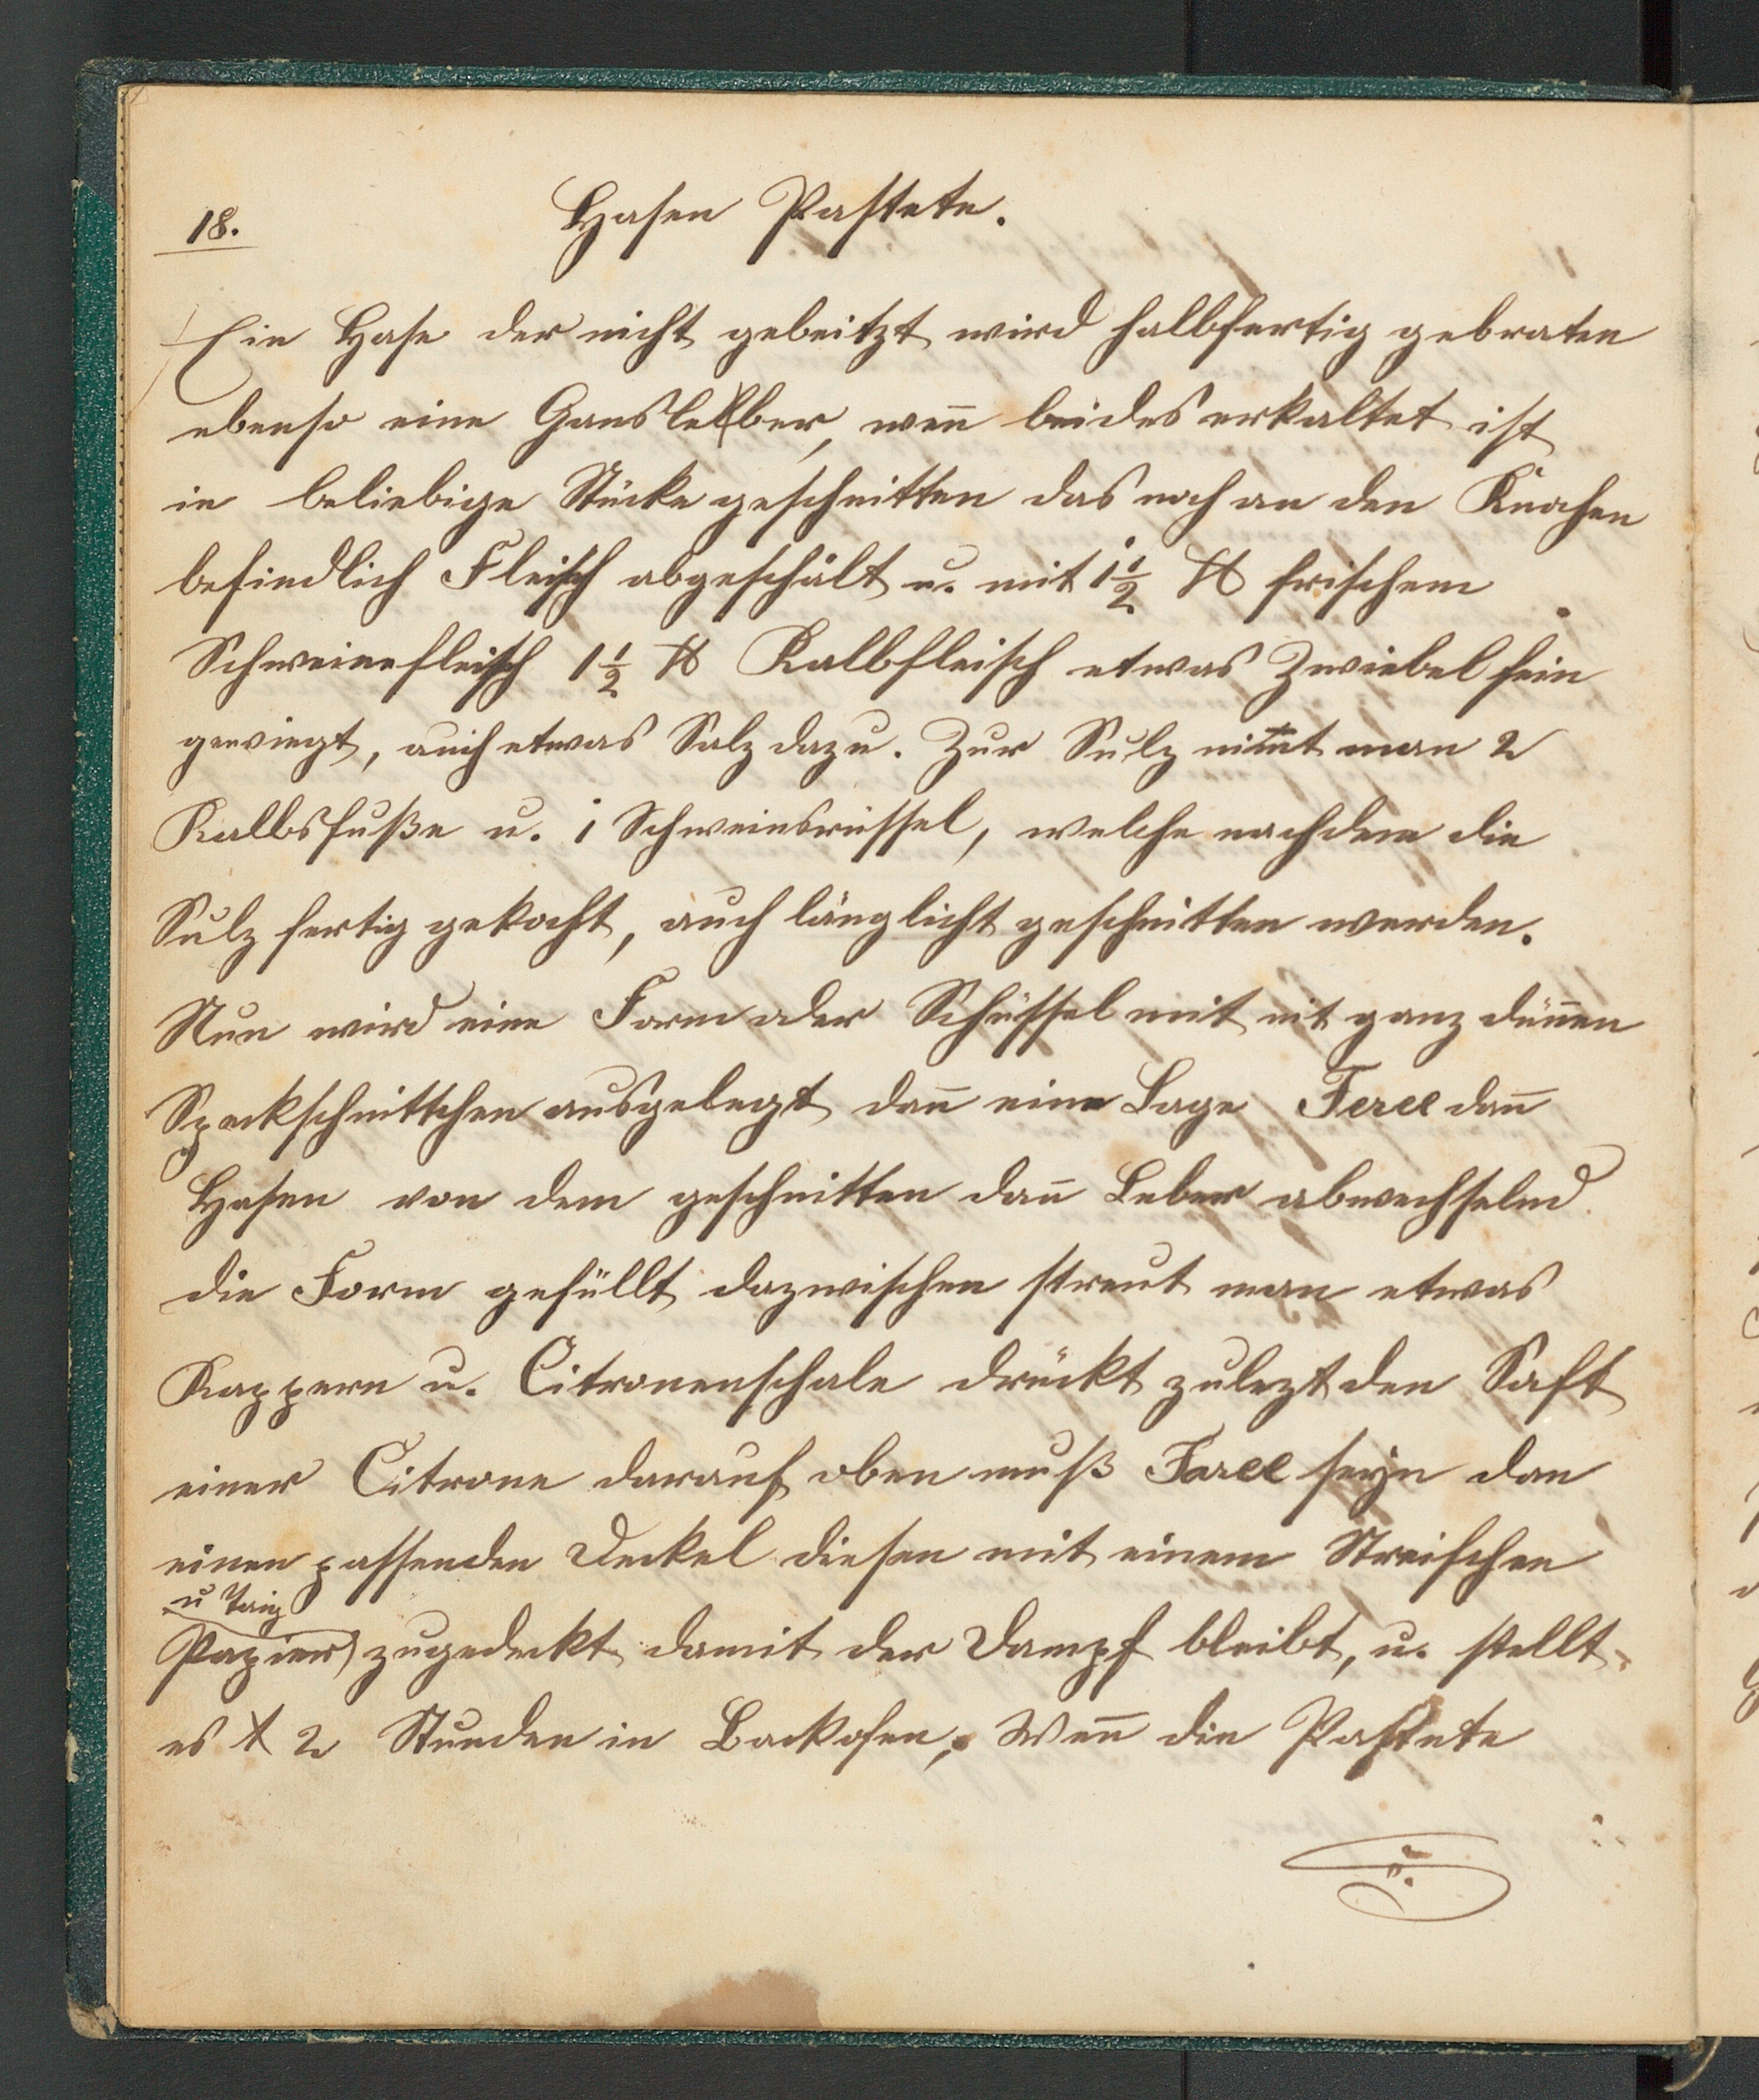 18.
Hasen Pastete.
Ein Hase der nicht gebeitzt wird halbfertig gebraten
ebenso eine Gansleber, wen̄ beides erkaltet ist
in beliebige Stücke geschnitten das noch an den Knochen
befindlich Fleisch abgeschält u. mit 1½ ℔ frischem
Schweinefleisch 1½ ℔ Kalbfleisch etwas Zwiebel fein
gewiegt, auch etwas Salz dazu. Zur Sulz nim̄t man 2
Kalbsfuße u. 1 Schweinsrüssel, welche nachdem die
Sulz fertig gekocht, auch länglicht geschnitten werden.
Nun wird eine Form oder Schüssel mit mit ganz dün̄en
Speckschnittchen ausgelegt dan̄ eine Lage dan̄
Hasen von dem geschnitten dan̄ Leber abwechselnd
die Form gefüllt dazwischen streut man etwas
Kappern u. Citronenschale drückt zulezt den Saft
einer Citrone darauf oben muß seyn dan
einen passenden Deckel diesen mit einem Streifchen
u Taig
Papier zugedeckt damit der Dampf bleibt, u. stellt
es 2 Stunden in Backofen, Wen̄ die Pastete